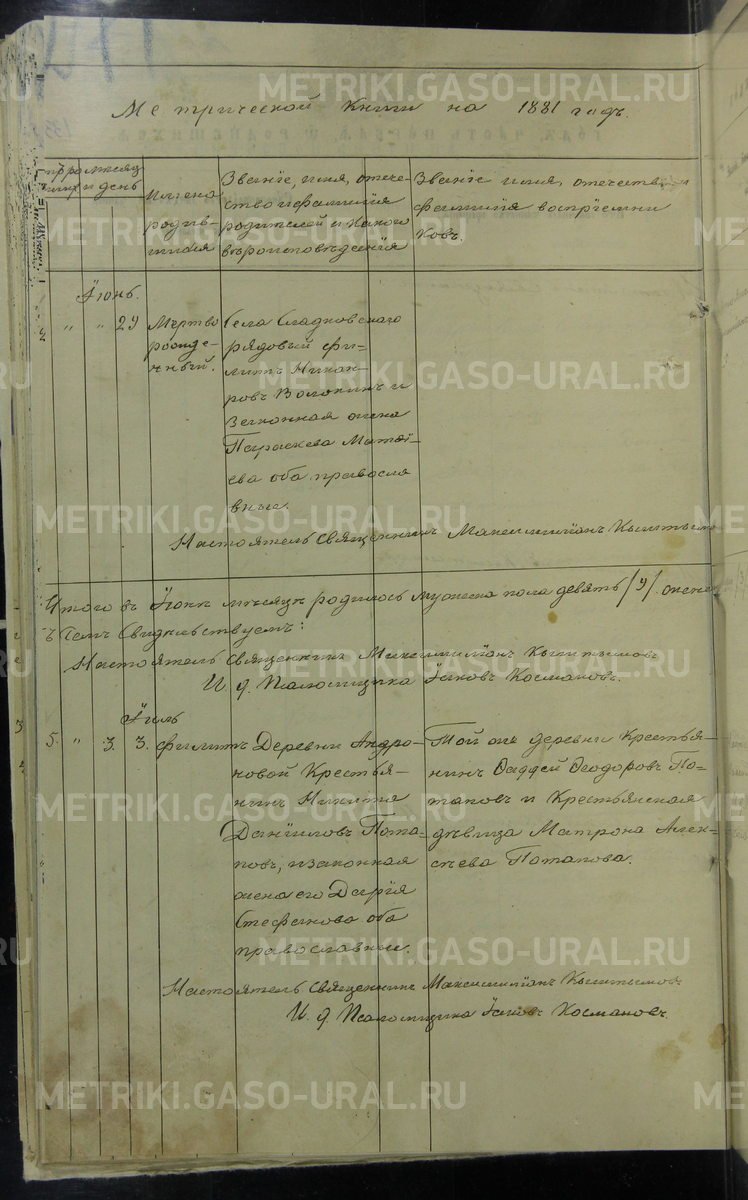 METRIKI.GASO-URAL.RU
Метрической Книги на 1881 годъ.
мѣсяц
и день
Имена
родив-
шихся
Званіе, имя, отече-
ство и фамилія
родителей и какого
вѣроисповѣденія
Званіе имя, отечество и
фамилія воспріемни
ковъ.
Іюнь.
" " 29 Мертво
рожде-
нный.
Села Сладковскаго
рядовый Фи-
липъ Никан-
ровъ Волокинъ и
законная жена
Параскева Матѳі-
ева оба правосла
вные.
Настоятель Священникъ Максимиліанъ
Итого въ Іюнѣ мѣсяцѣ родилось мужеска пола девять /9/. женск
Свидѣтельствуемъ:
Настоятель Священникъ Максимиліанъ
И. д. Псаломщика Іаковъ Космаковъ.
Іюль
5. " 3. 3. Филипъ
Деревни Андро-
новой Крестья-
нинъ Никита
Даніиловъ Пота-
повъ, и законная
жена его Дарія
Стефанова оба
православные.
Той же деревни Крестья-
нинъ Ѳаддей Ѳеодоровъ По-
таповъ и Крестьянская
дѣвица Матрона Алек-
сѣева Потапова.
Настоятель Священникъ Максимиліанъ
И. д. Псаломщика Іаковъ Космаковъ.